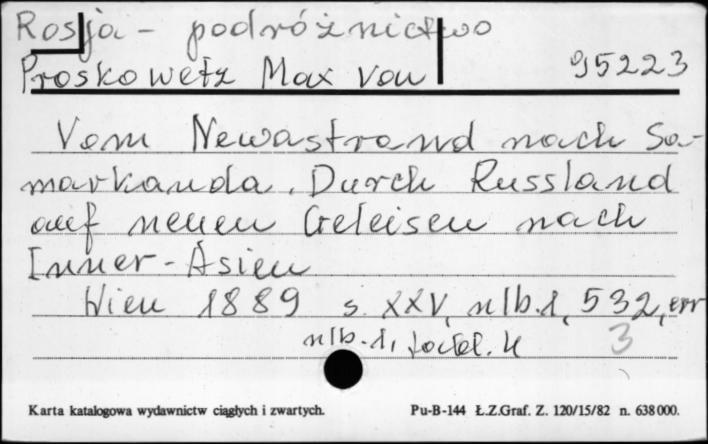 Rosja - podróżnictwo
Proskowetz Max von 95223
Vom Newastrand nach Sa-
markanda. Durch Russland
auf neuen Geleisen nach
Inner-Asien
Wien 1889 s. XXV, nlb.1, 532, err
nlb.1, 3
Karta katalogowa wydawnictw ciągłych i zwartych. Pu-B-144 Ł.Z.Graf. Z. 120/15/82 n. 638000.